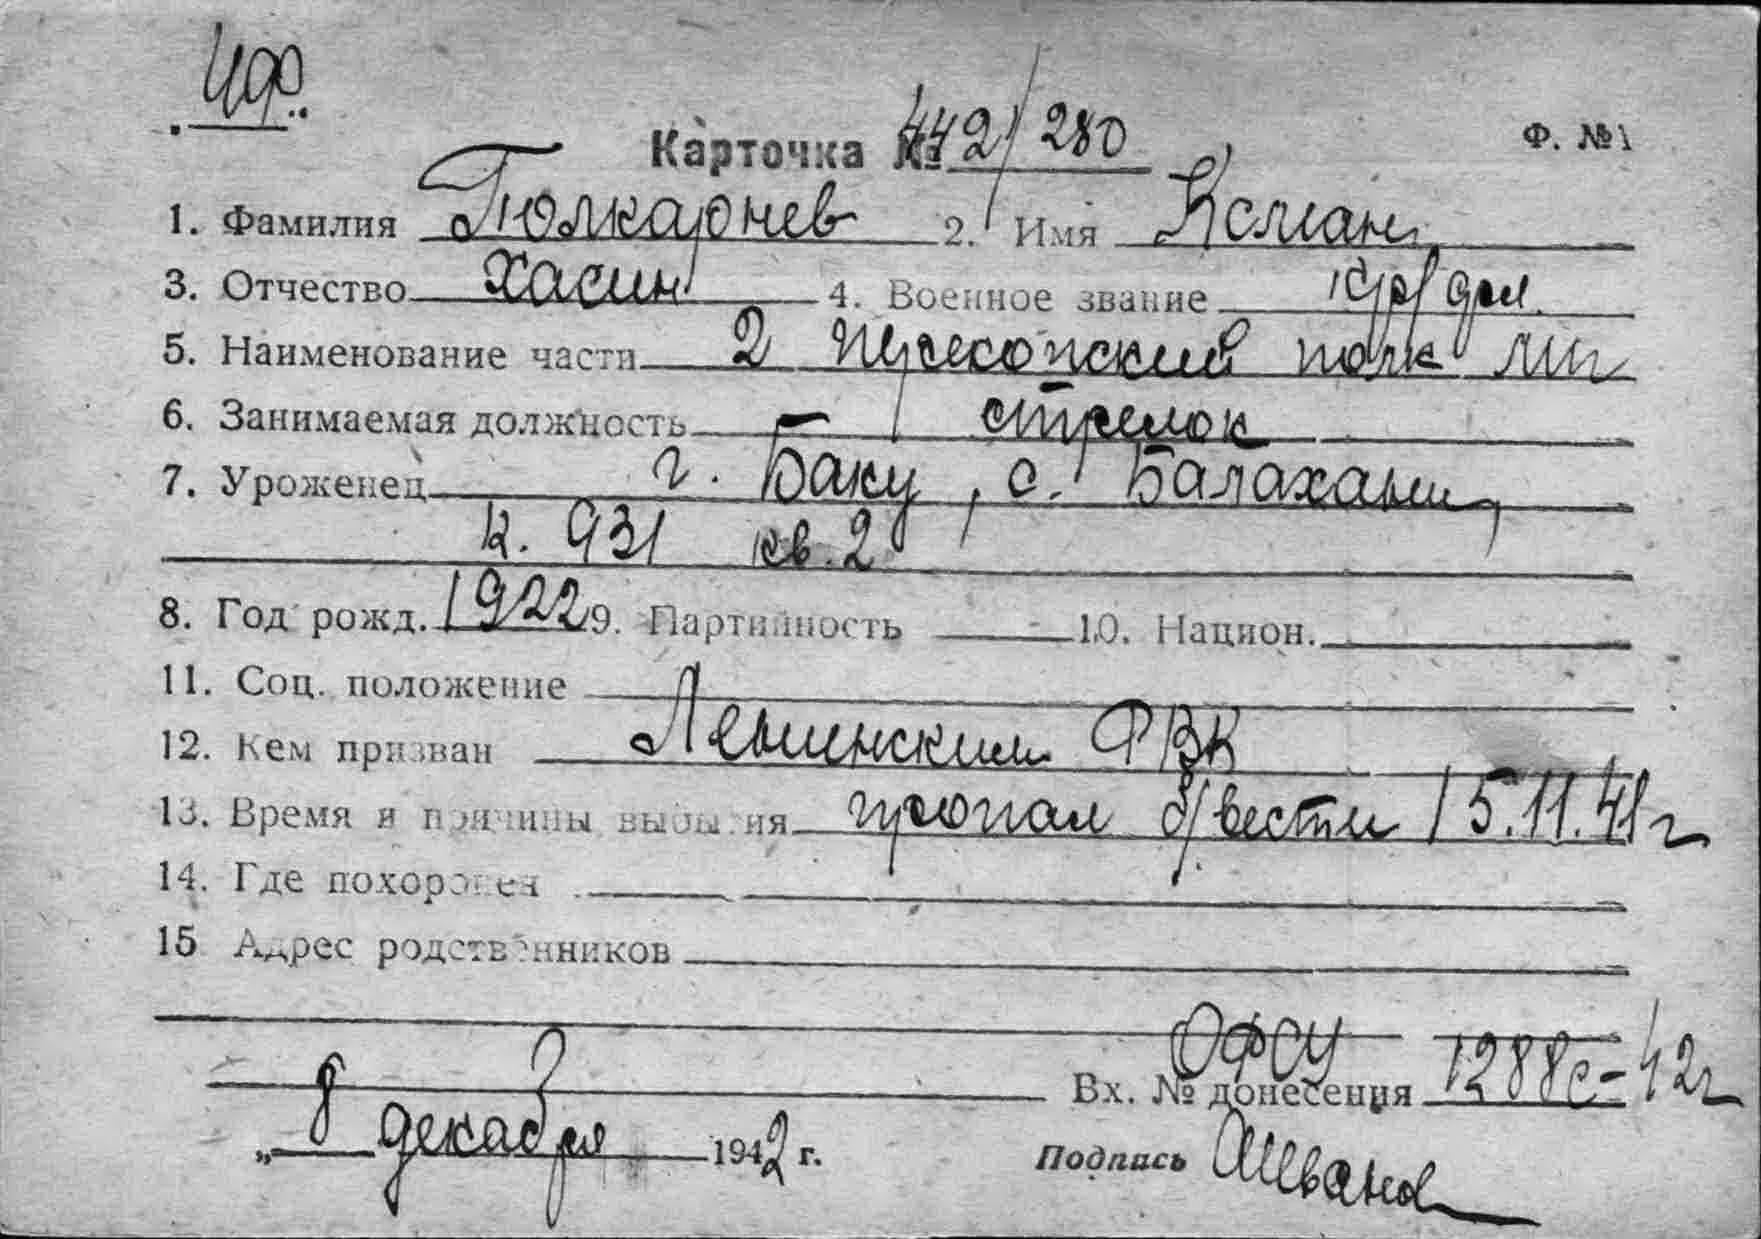 Карточка № 442/280 Ф. №1
1. Фамилия Гюлкаронев 2. Имя
3. Отчество Хасин 4. Военное звание
5. Наименование части 2 Перекопский полк МП
6. Занимаемая должность – стрелок
7. Уроженец г. Баку, с. Балаханы,
к. 931 кв. 2
8. Год рожд. 1922 9. Партийность 10. Национ.
11. Соц. положение
12. Кем призван Ленинским РВК
13. Время и причины выбытия пропал б/вести 15.11.41 г
14. Где похоронен
15 Адрес родственников
ОФСУ
Вх. № донесения 1288с-42г
„ 8 декабря 1942 г. Подпись